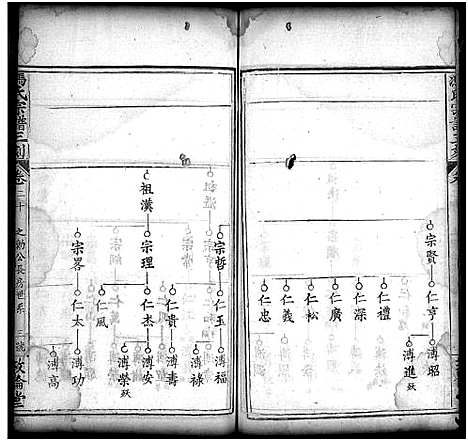 宗賢
仁亨
仁禮
仁深
仁廣
仁松
仁義
仁忠
溥昭
溥進
殀
祖漢
宗哲
宗理
宗畧
仁玉
仁貴
仁杰
仁風
仁太
溥福
溥祿
溥壽
溥安
溥榮
殀
溥功
溥高
馮氏宗譜三刻
卷二十
之勳公長房世系
三
敦倫堂